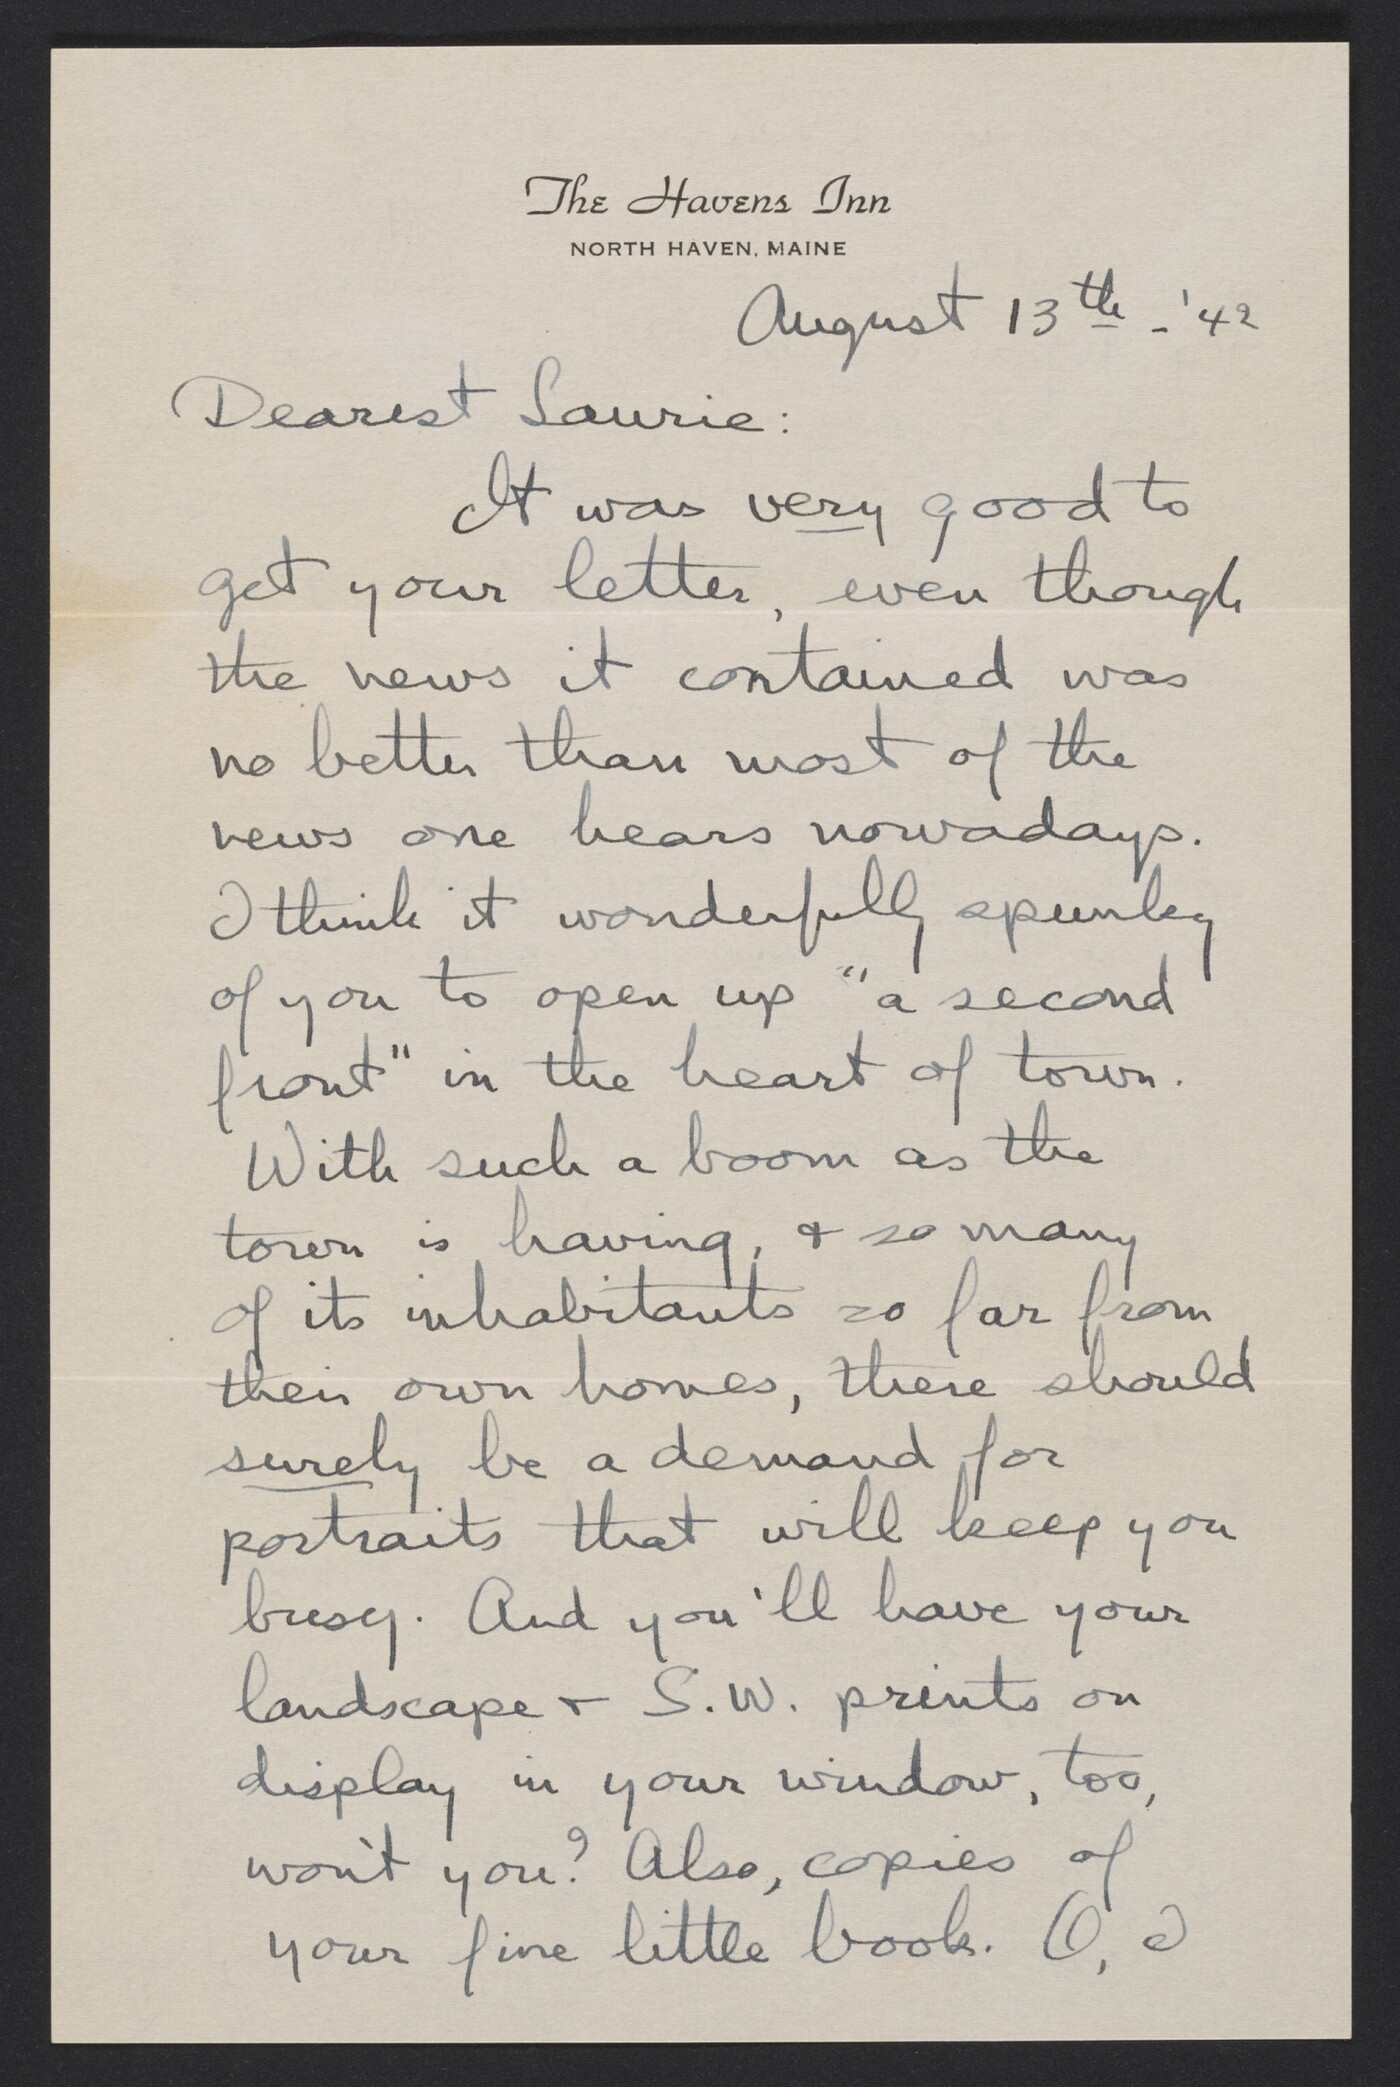 The Havens Inn
NORTH HAVEN, MAINE
August 13th - '42
Dearest Laurie:
It was very good to
get your letter, even though
the news it contained was
no better than most of the
news one hears nowadays.
I think it wonderfully spunky
of you to open up "a second
front" in the heart of town.
With such a boom as the
town is having, & so many
of its inhabitants so far from
their own homes, there should
surely be a demand for
portraits that will keep you
busy. And you'll have your
landscape & S.W. prints on
display in your window, too,
won't you? Also, copies of
your fine little book. O, I